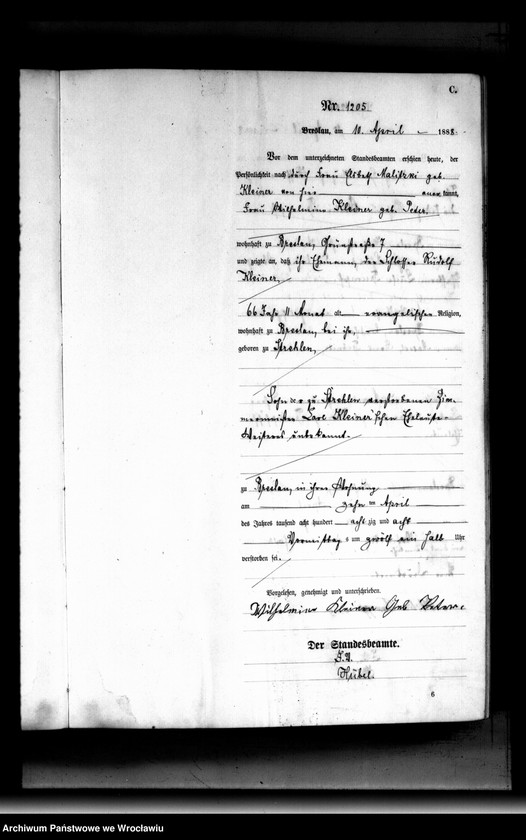 C.
Nr. 1205
Breslau, am 10. April 1888.
Vor dem unterzeichneten Standesbeamten erschien heute, der
Persönlichkeit nach durch Frau Malitzki geb.
Kleiner von hier anerkannt,
Frau Wilhelmine Kleiner geb. Peter.
wohnhaft zu Breslau, Grünstraße 7
und zeigte an, daß ihr Ehemann, der Schlosser Rudolf
Kleiner,
66 Jahr 11 Monat alt, evangelischer Religion,
wohnhaft zu Breslau, bei ihr,
geboren zu Strehlen,
Sohn der zu Strehlen verstorbenen Zim-
mermeister Carl Kleiner'schen Eheleute.
Weiteres unbekannt.
zu Breslau, in ihrer Wohnung
am zehn ten April
des Jahres tausend acht hundert achtzig und acht
Vormittags um zwölf ein halb Uhr
verstorben sei.
Vorgelesen, genehmigt und unterschrieben.
Wilhelmine Kleiner Geb Peter
Der Standesbeamte.
I.V.
Hübel.
6
Archiwum Państwowe we Wrocławiu